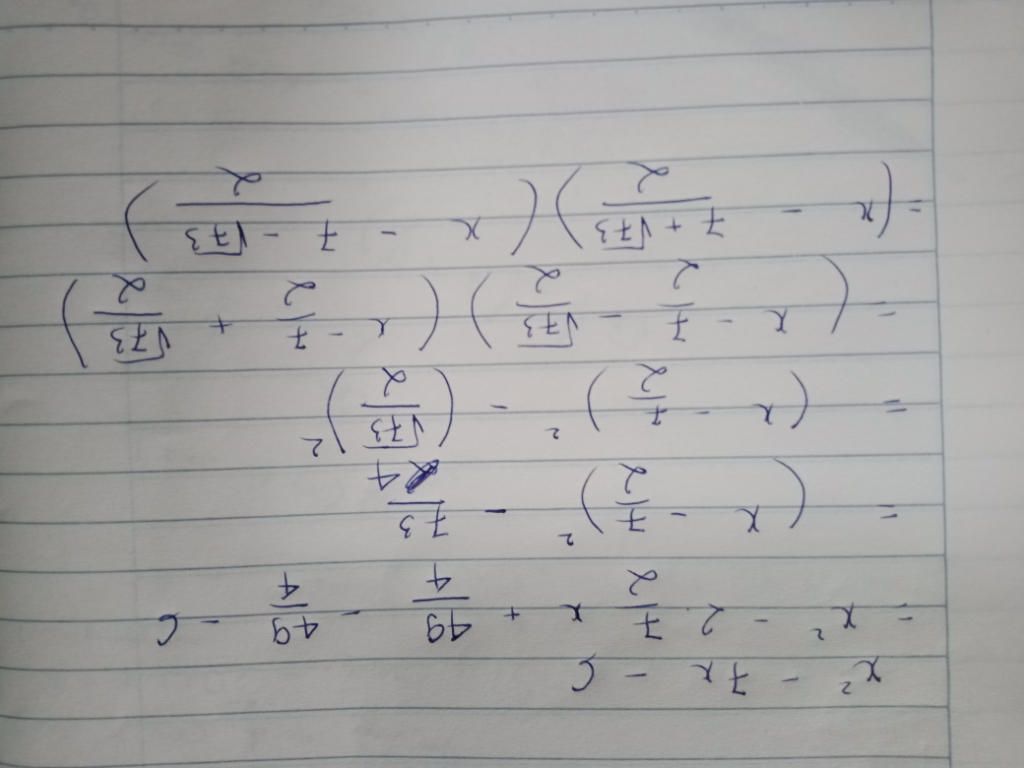 x² - 7x - 6
= x² - 2·\frac{7}{2} x + \frac{49}{4} - \frac{49}{4} - 6
= (x - \frac{7}{2})² - \frac{73}{4}
= (x - \frac{7}{2})² - (\frac{√73}{2})²
= (x - \frac{7}{2} - \frac{√73}{2}) (x - \frac{7}{2} + \frac{√73}{2})
= (x - \frac{7 + √73}{2}) (x - \frac{7 - √73}{2})